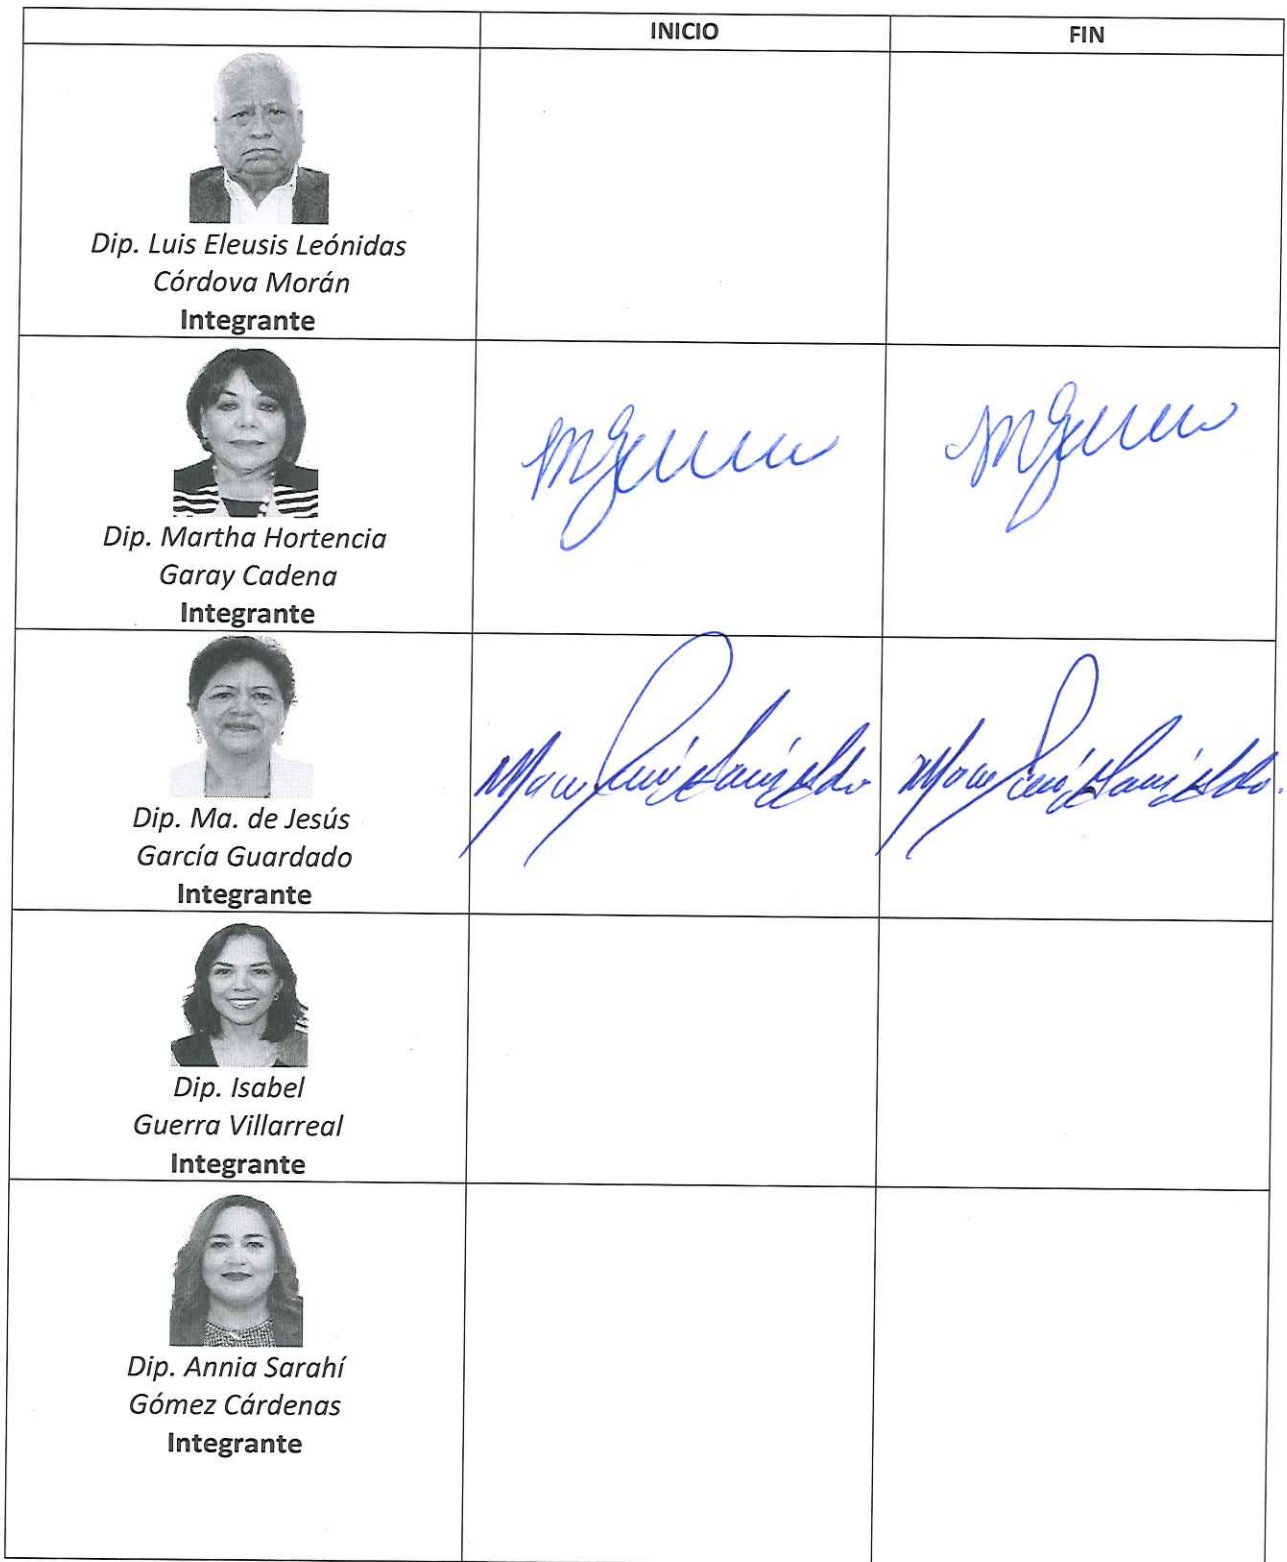 INICIO
FIN
Dip. Luis Eleusis Leónidas
Córdova Morán
Integrante
Dip. Martha Hortencia
Garay Cadena
Integrante
Dip. Ma. de Jesús
García Guardado
Integrante
Dip. Isabel
Guerra Villarreal
Integrante
Dip. Annia Sarahí
Gómez Cárdenas
Integrante